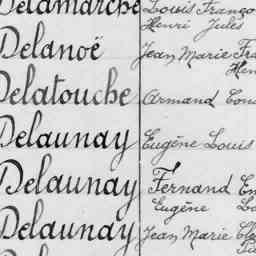 Delamarche Louis Franço
Henri Jules
Delanoë Jean Marie Fra
Hen
Delatouche Armand Cons
Delaunay Eugène Louis
Delaunay Fernand Em
Eugène Lo
Delaunay Jean Marie